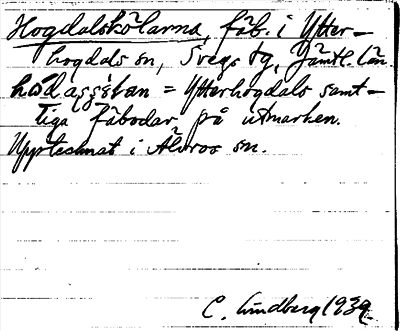 Hogdalskölarna, fäb. i Ytter-
hogdals sn, Svegs tg, Jämtl. län.
= Ytterhogdals samt-
liga fäbodar på utmarken.
Upptecknat i Älvros sn.
C. Lindberg 1939